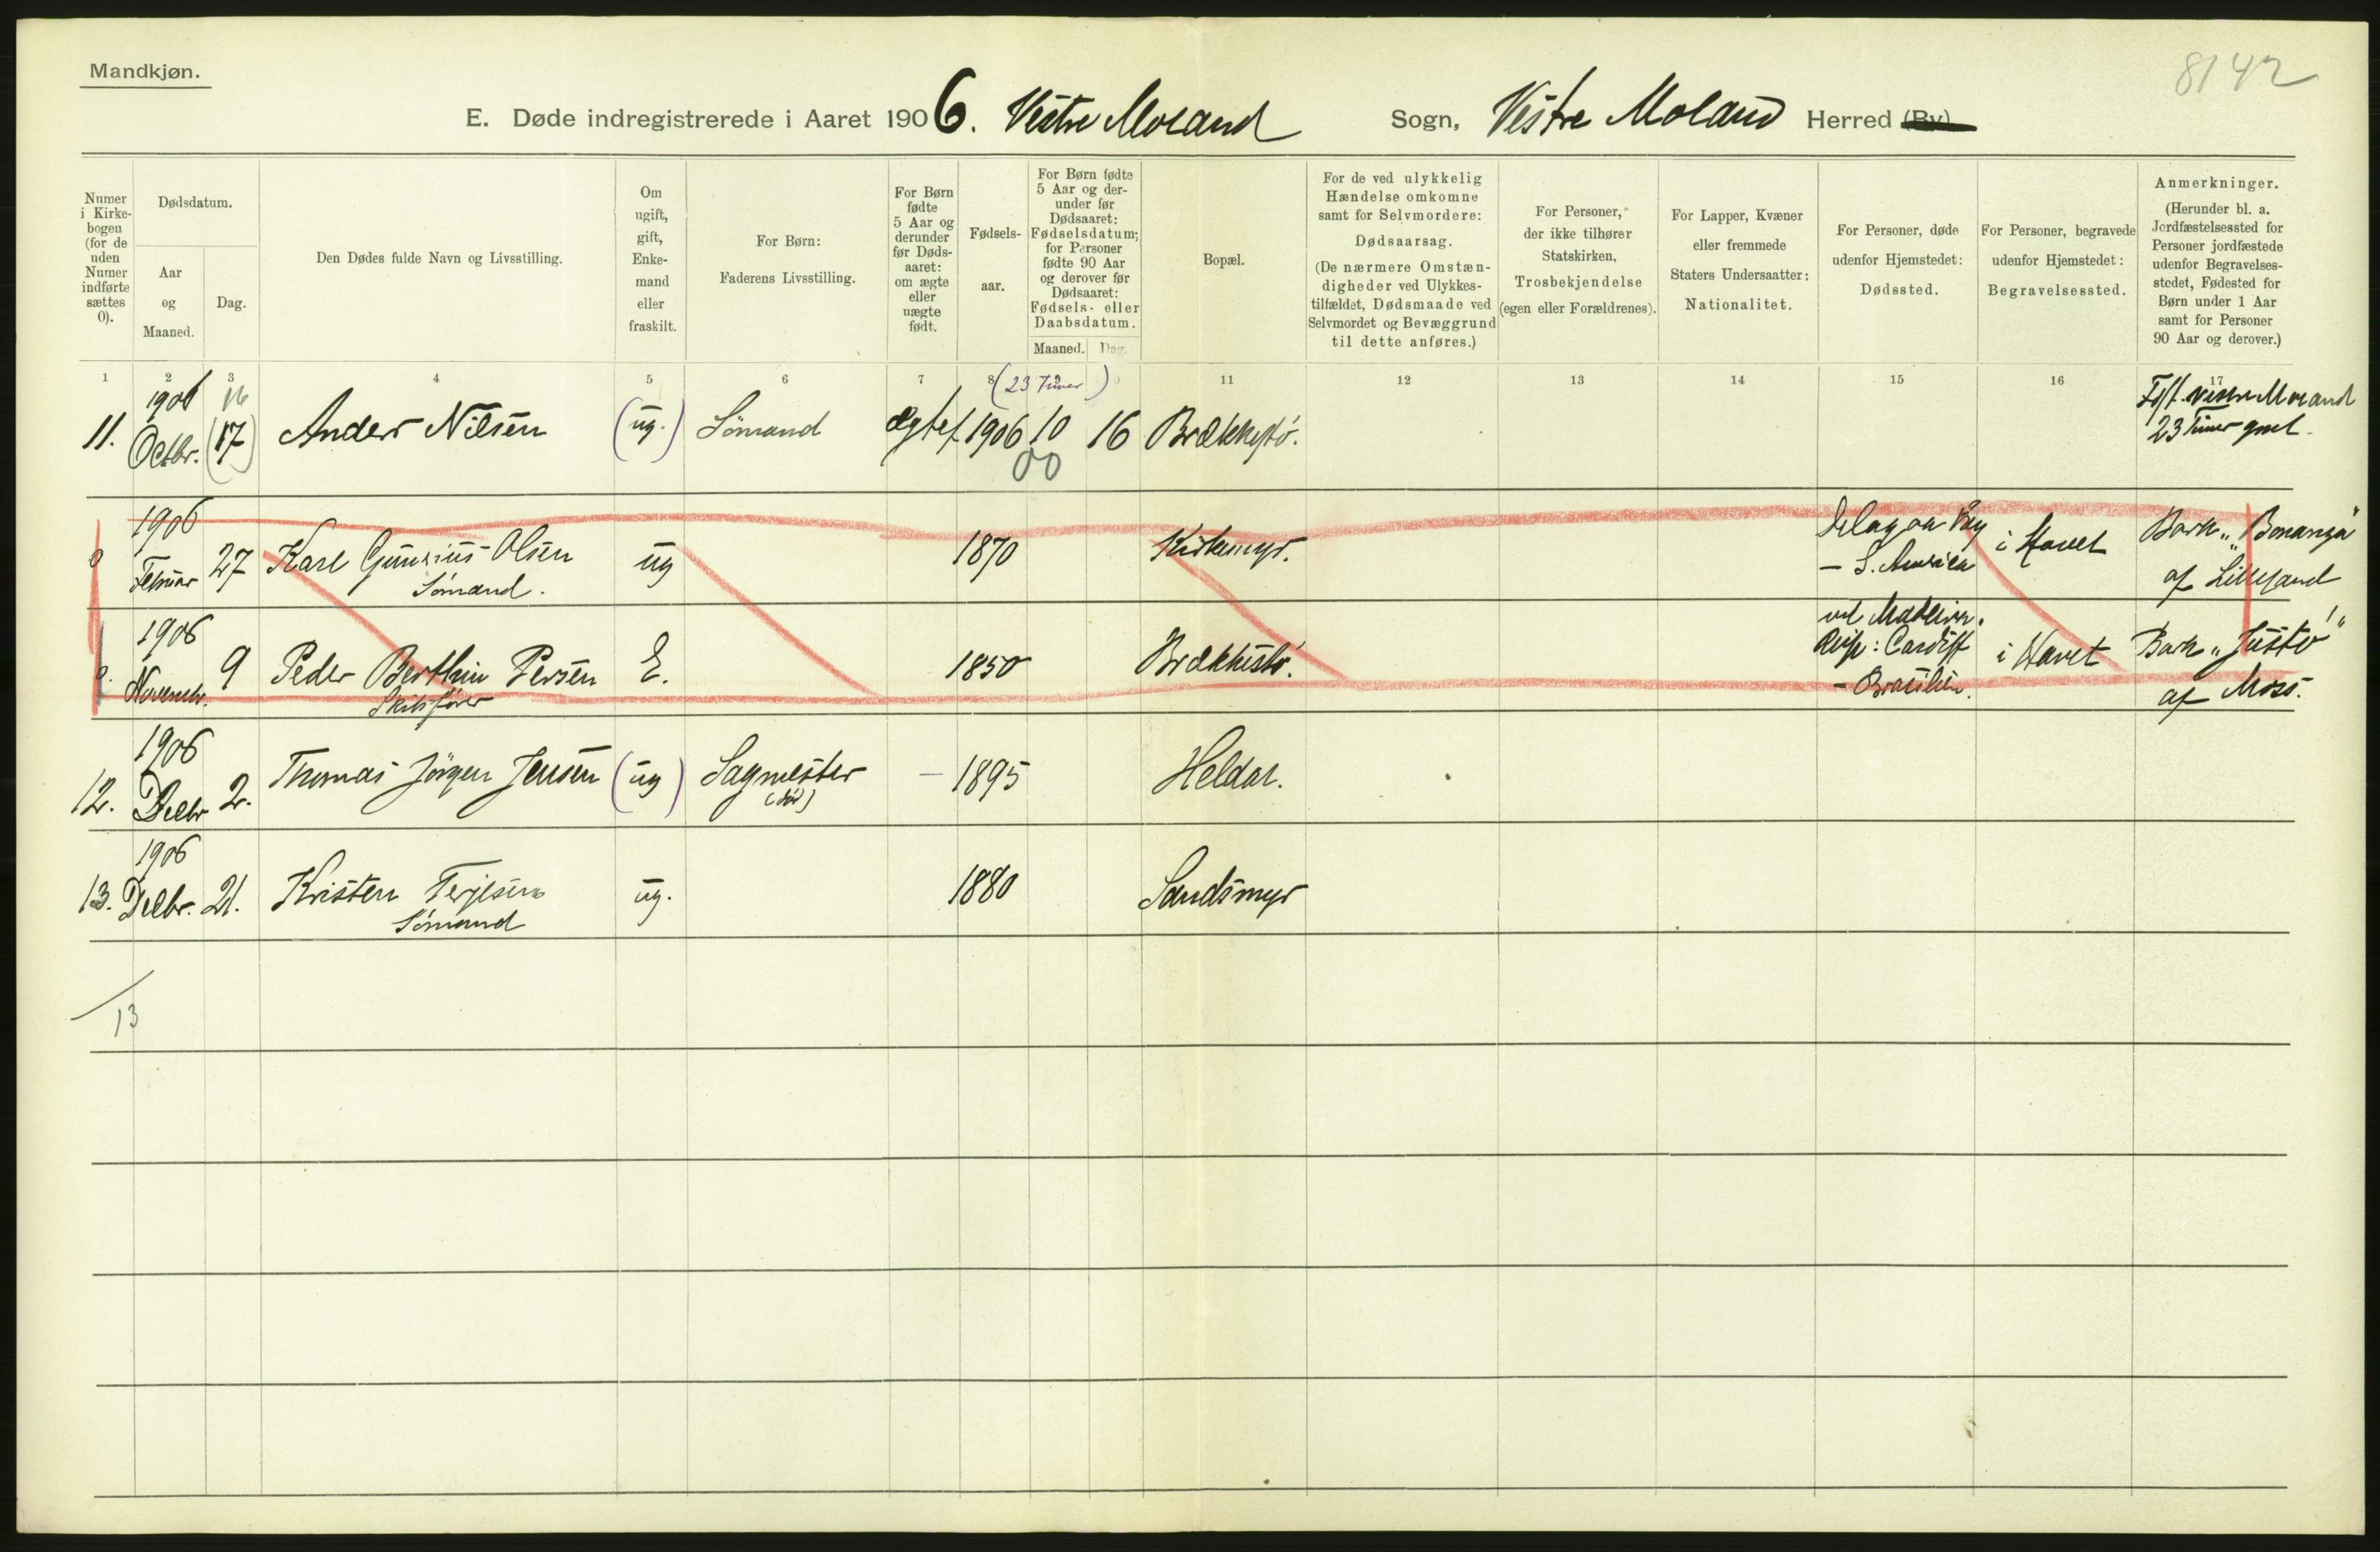 Mandkjøn.
8142
E. Døde indregistrerede i Aaret 1906. Vestre Moland Sogn, Vestre Moland Herred (By)
Numer i Kirkebogen (for de uden Numer indførte sættes 0).
Dødsdatum.
Aar og Maaned.
Dag.
Den Dødes fulde Navn og Livsstilling.
Om ugift, gift, Enkemand eller fraskilt.
For Børn: Faderens Livsstilling.
For Børn fødte 5 Aar og derunder før Dødsaaret: om ægte eller uægte født.
Fødselsaar.
For Børn fødte 5 Aar og derunder før Dødsaaret: Fødselsdatum; for Personer fødte 90 Aar og derover før Dødsaaret: Fødsels- eller Daabsdatum.
Maaned. Dag.
Bopæl.
For de ved ulykkelig Hændelse omkomne samt for Selvmordere: Dødsaarsag. (De nærmere Omstændigheder ved Ulykkestilfældet, Dødsmaade ved Selvmordet og Bevæggrund til dette anføres.)
For Personer, der ikke tilhører Statskirken, Trosbekjendelse (egen eller Forældrenes).
For Lapper, Kvæner eller fremmede Staters Undersaatter: Nationalitet.
For Personer, døde udenfor Hjemstedet: Dødssted.
For Personer, begravede udenfor Hjemstedet: Begravelsessted.
Anmerkninger. (Herunder bl. a. Jordfæstelsessted for Personer jordfæstede udenfor Begravelsesstedet, Fødested for Børn under 1 Aar samt for Personer 90 Aar og derover.)
1 2 3 4 5 6 7 8 11 12 13 14 15 16 17
(23 Timer)
1906 16
11. Octbr. (17) Anders Nilsen (ug.) Sömand ægtef 1906 10 16 Brækkestö.
00
Vestre Moland
23 Timer gml.
1906
0 Februar 27 Karl Olsen ug 1870 Kirkemyr. i Havet Bark "Bonanza"
Sömand. - S. Amerika af Lillesand
1906
0. Novembr. 9 Peder Berthin Persen E. 1850 Brækkestö. ved Madeira. Reise: Cardiff - Brasilien. i Havet Bark "Justo"
Skibsfører af Moss.
1906
12. Decbr 2. Thomas Jörgen Jensen (ug) Sagmester - 1895 Heldal.
(död)
1906
13. Decbr. 21. Kristen Terjesen ug. 1880 Sandsmyr
Sömand
13